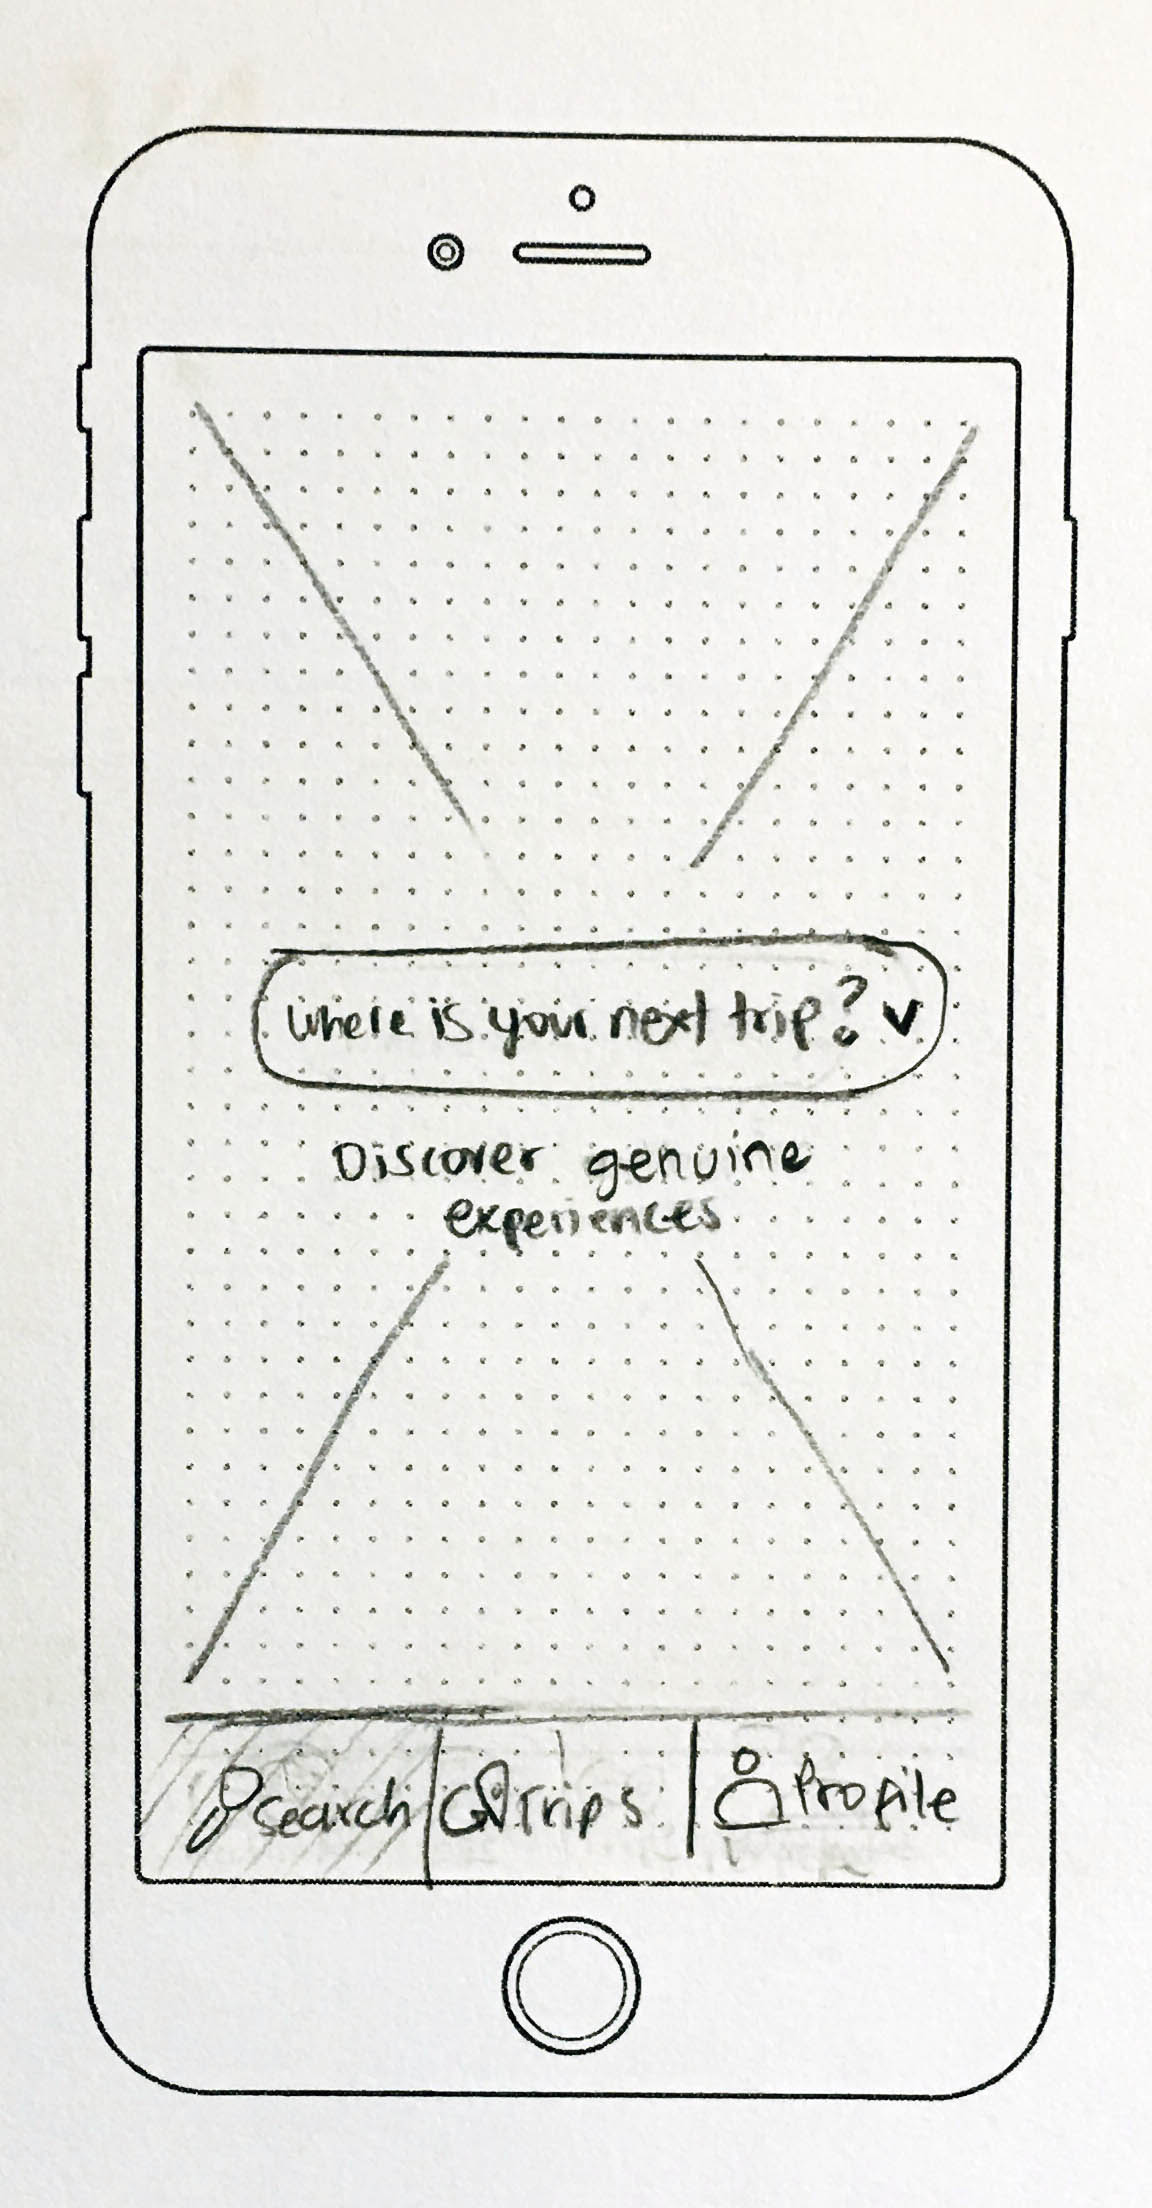 Where is your next trip? v
Discover genuine
experiences
Search Trips Profile